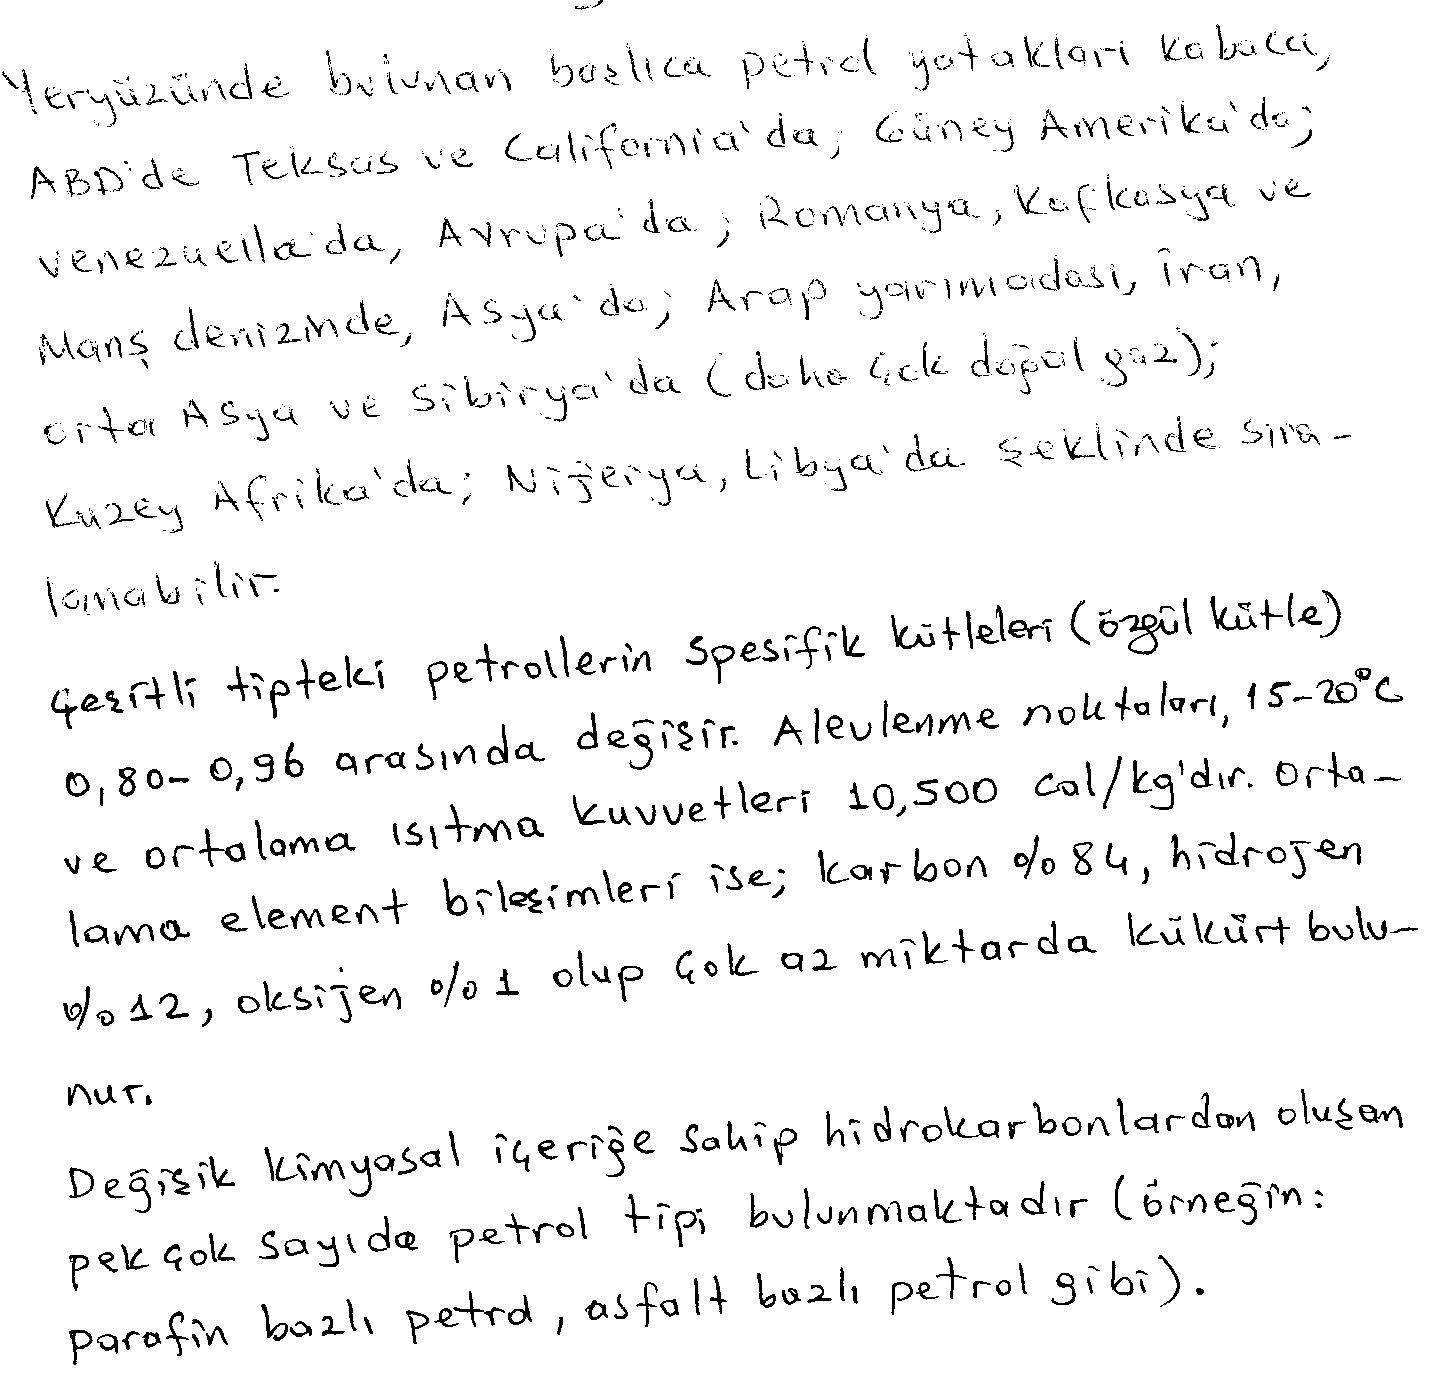 Yeryüzünde bulunan başlıca petrol yatakları kabaca,
ABD'de Teksas ve California'da; Güney Amerika'da;
Venezuella'da, Avrupa'da; Romanya, Kafkasya ve
Manş denizinde, Asya'da; Arap yarımadası, İran,
Orta Asya ve Sibirya'da (daha çok doğal gaz);
Kuzey Afrika'da; Nijerya, Libya'da şeklinde sıra-
lanabilir.
Çeşitli tipteki petrollerin spesifik kütleleri (özgül kütle)
0,80-0,96 arasında değişir. Alevlenme noktaları, 15-20°C
ve ortalama ısıtma kuvvetleri 10,500 cal/kg'dır. Orta-
lama element bileşimleri ise; karbon %84, hidrojen
%12, oksijen %1 olup çok az miktarda kükürt bulu-
nur.
Değişik kimyasal içeriğe sahip hidrokarbonlardan oluşan
pek çok sayıda petrol tipi bulunmaktadır (örneğin:
parafin bazlı petrol, asfalt bazlı petrol gibi).